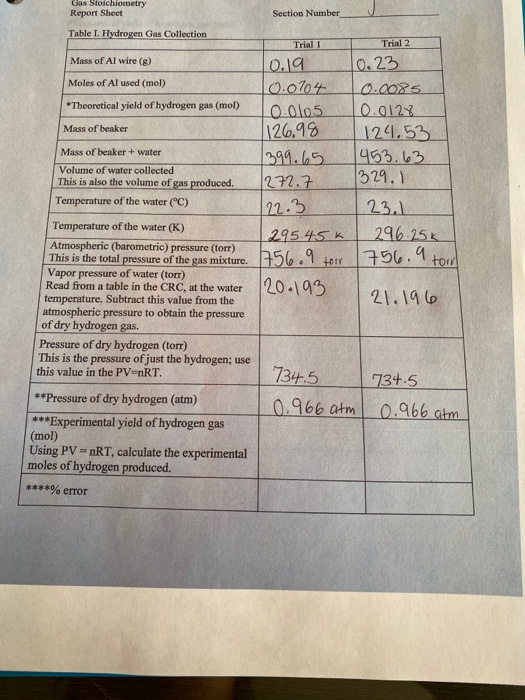 Gas Stoichiometry
Report Sheet Section Number
Table I. Hydrogen Gas Collection
Trial 1 Trial 2
Mass of Al wire (g) 0.19 0.23
Moles of Al used (mol) 0.0704 0.0085
*Theoretical yield of hydrogen gas (mol) 0.0105 0.0128
Mass of beaker 126.98 124.53
Mass of beaker + water 399.65 453.63
Volume of water collected
This is also the volume of gas produced. 272.7 329.1
Temperature of the water (°C) 22.3 23.1
Temperature of the water (K) 295.45 K 296.25K
Atmospheric (barometric) pressure (torr)
This is the total pressure of the gas mixture. 756.9 torr 756.9 torr
Vapor pressure of water (torr)
Read from a table in the CRC, at the water 20.193
temperature. Subtract this value from the 21.196
atmospheric pressure to obtain the pressure
of dry hydrogen gas.
Pressure of dry hydrogen (torr)
This is the pressure of just the hydrogen; use
this value in the PV=nRT. 734.5 734.5
**Pressure of dry hydrogen (atm) 0.966 atm 0.966 atm
***Experimental yield of hydrogen gas
(mol)
Using PV = nRT, calculate the experimental
moles of hydrogen produced.
****% error